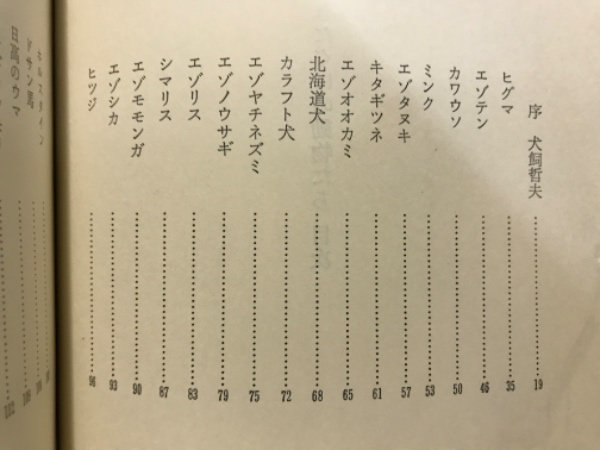 序 犬飼哲夫……19
ヒグマ……35
エゾテン……46
カワウソ……50
ミンク……53
エゾタヌキ……57
キタギツネ……61
エゾオオカミ……65
北海道犬……68
カラフト犬……72
エゾヤチネズミ……75
エゾノウサギ……79
エゾリス……83
シマリス……87
エゾモモンガ……90
エゾシカ……93
ヒツジ……96
ホルスタイン
ドサン馬
日高のウマ……112